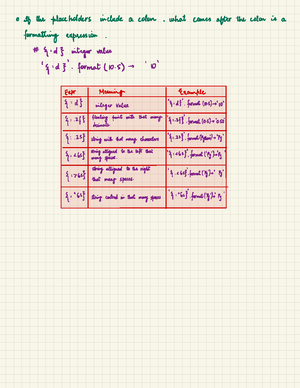 • If the placeholders include a colon, what comes after the colon is a
formatting expression.
# {:d} integer value
'{:d}'.format(10.5) → '10'
Expr Meaning Example
{:d} integer value '{:d}'.format(10.5)→'10'
{:.2f} floating point with that many
decimals
{:.2s} string with that many characters
{:<6s} string aligned to the left that
many spaces
{:>6s} string aligned to the right
that many spaces
{:^6s} string centred in that many spaces